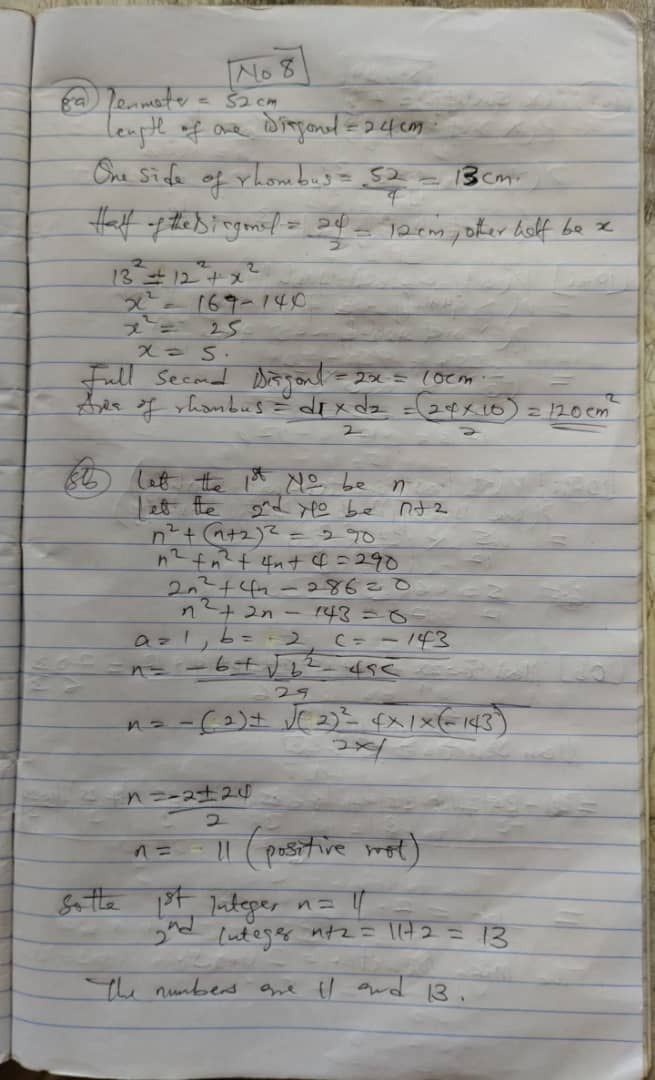 No 8
8a) Perimeter = 52 cm
Length of one Diagonal = 24 cm
One Side of rhombus = 52/4 = 13 cm.
Half of the Diagonal = 24/2 = 12 cm, other half be x
13² = 12² + x²
x² = 169 - 144
x² = 25
x = 5.
Full Second Diagonal = 2x = 10cm.
Area of rhombus = d1 x d2 / 2 = (24 x 10) / 2 = 120 cm²
8b) Let the 1st No be n
Let the 2nd No be n+2
n² + (n+2)² = 290
n² + n² + 4n + 4 = 290
2n² + 4n - 286 = 0
n² + 2n - 143 = 0
a = 1, b = 2, c = -143
n = -b ± √b² - 4ac / 2a
n = -(2) ± √(2)² - 4 x 1 x (-143) / 2x1
n = -2 ± 24 / 2
n = 11 (positive root)
So the 1st Integer n = 11
2nd Integer n+2 = 11+2 = 13
The numbers are 11 and 13.